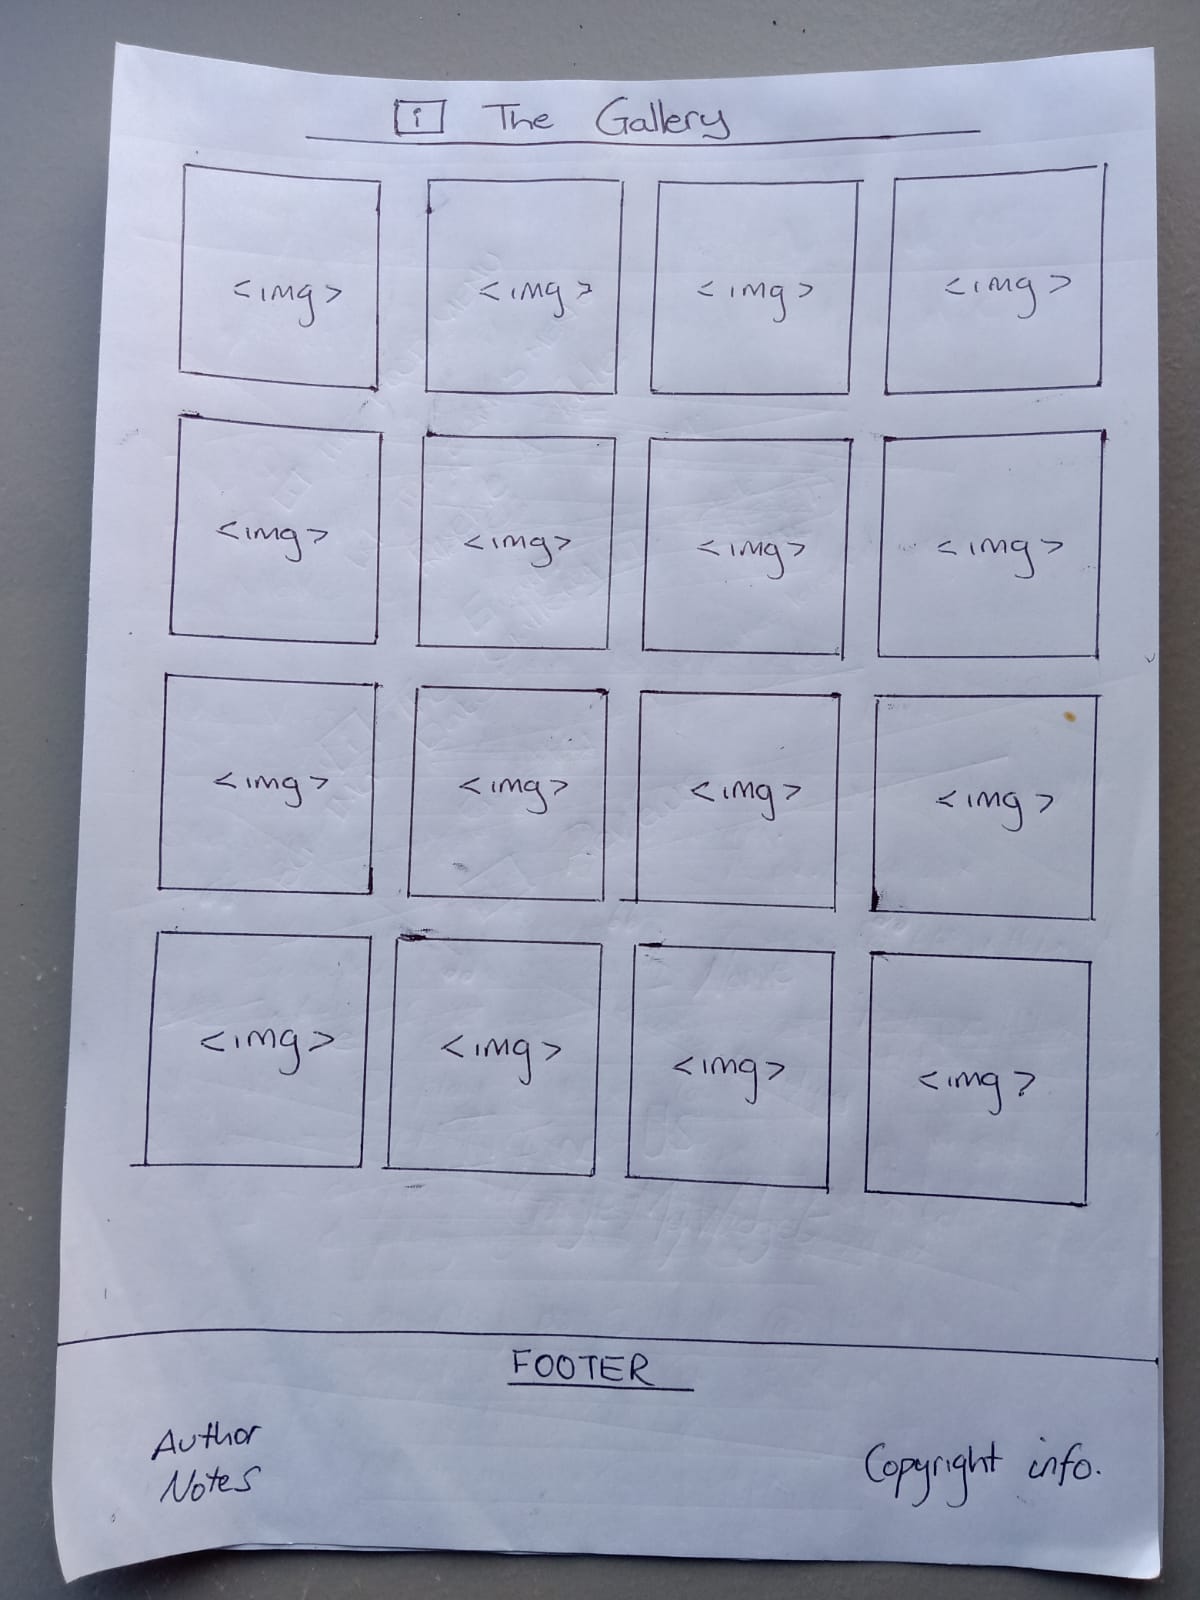 i The Gallery
<img> <img> <img> <img>
<img> <img> <img> <img>
<img> <img> <img> <img>
<img> <img> <img> <img>
FOOTER
Author
Notes
Copyright info.